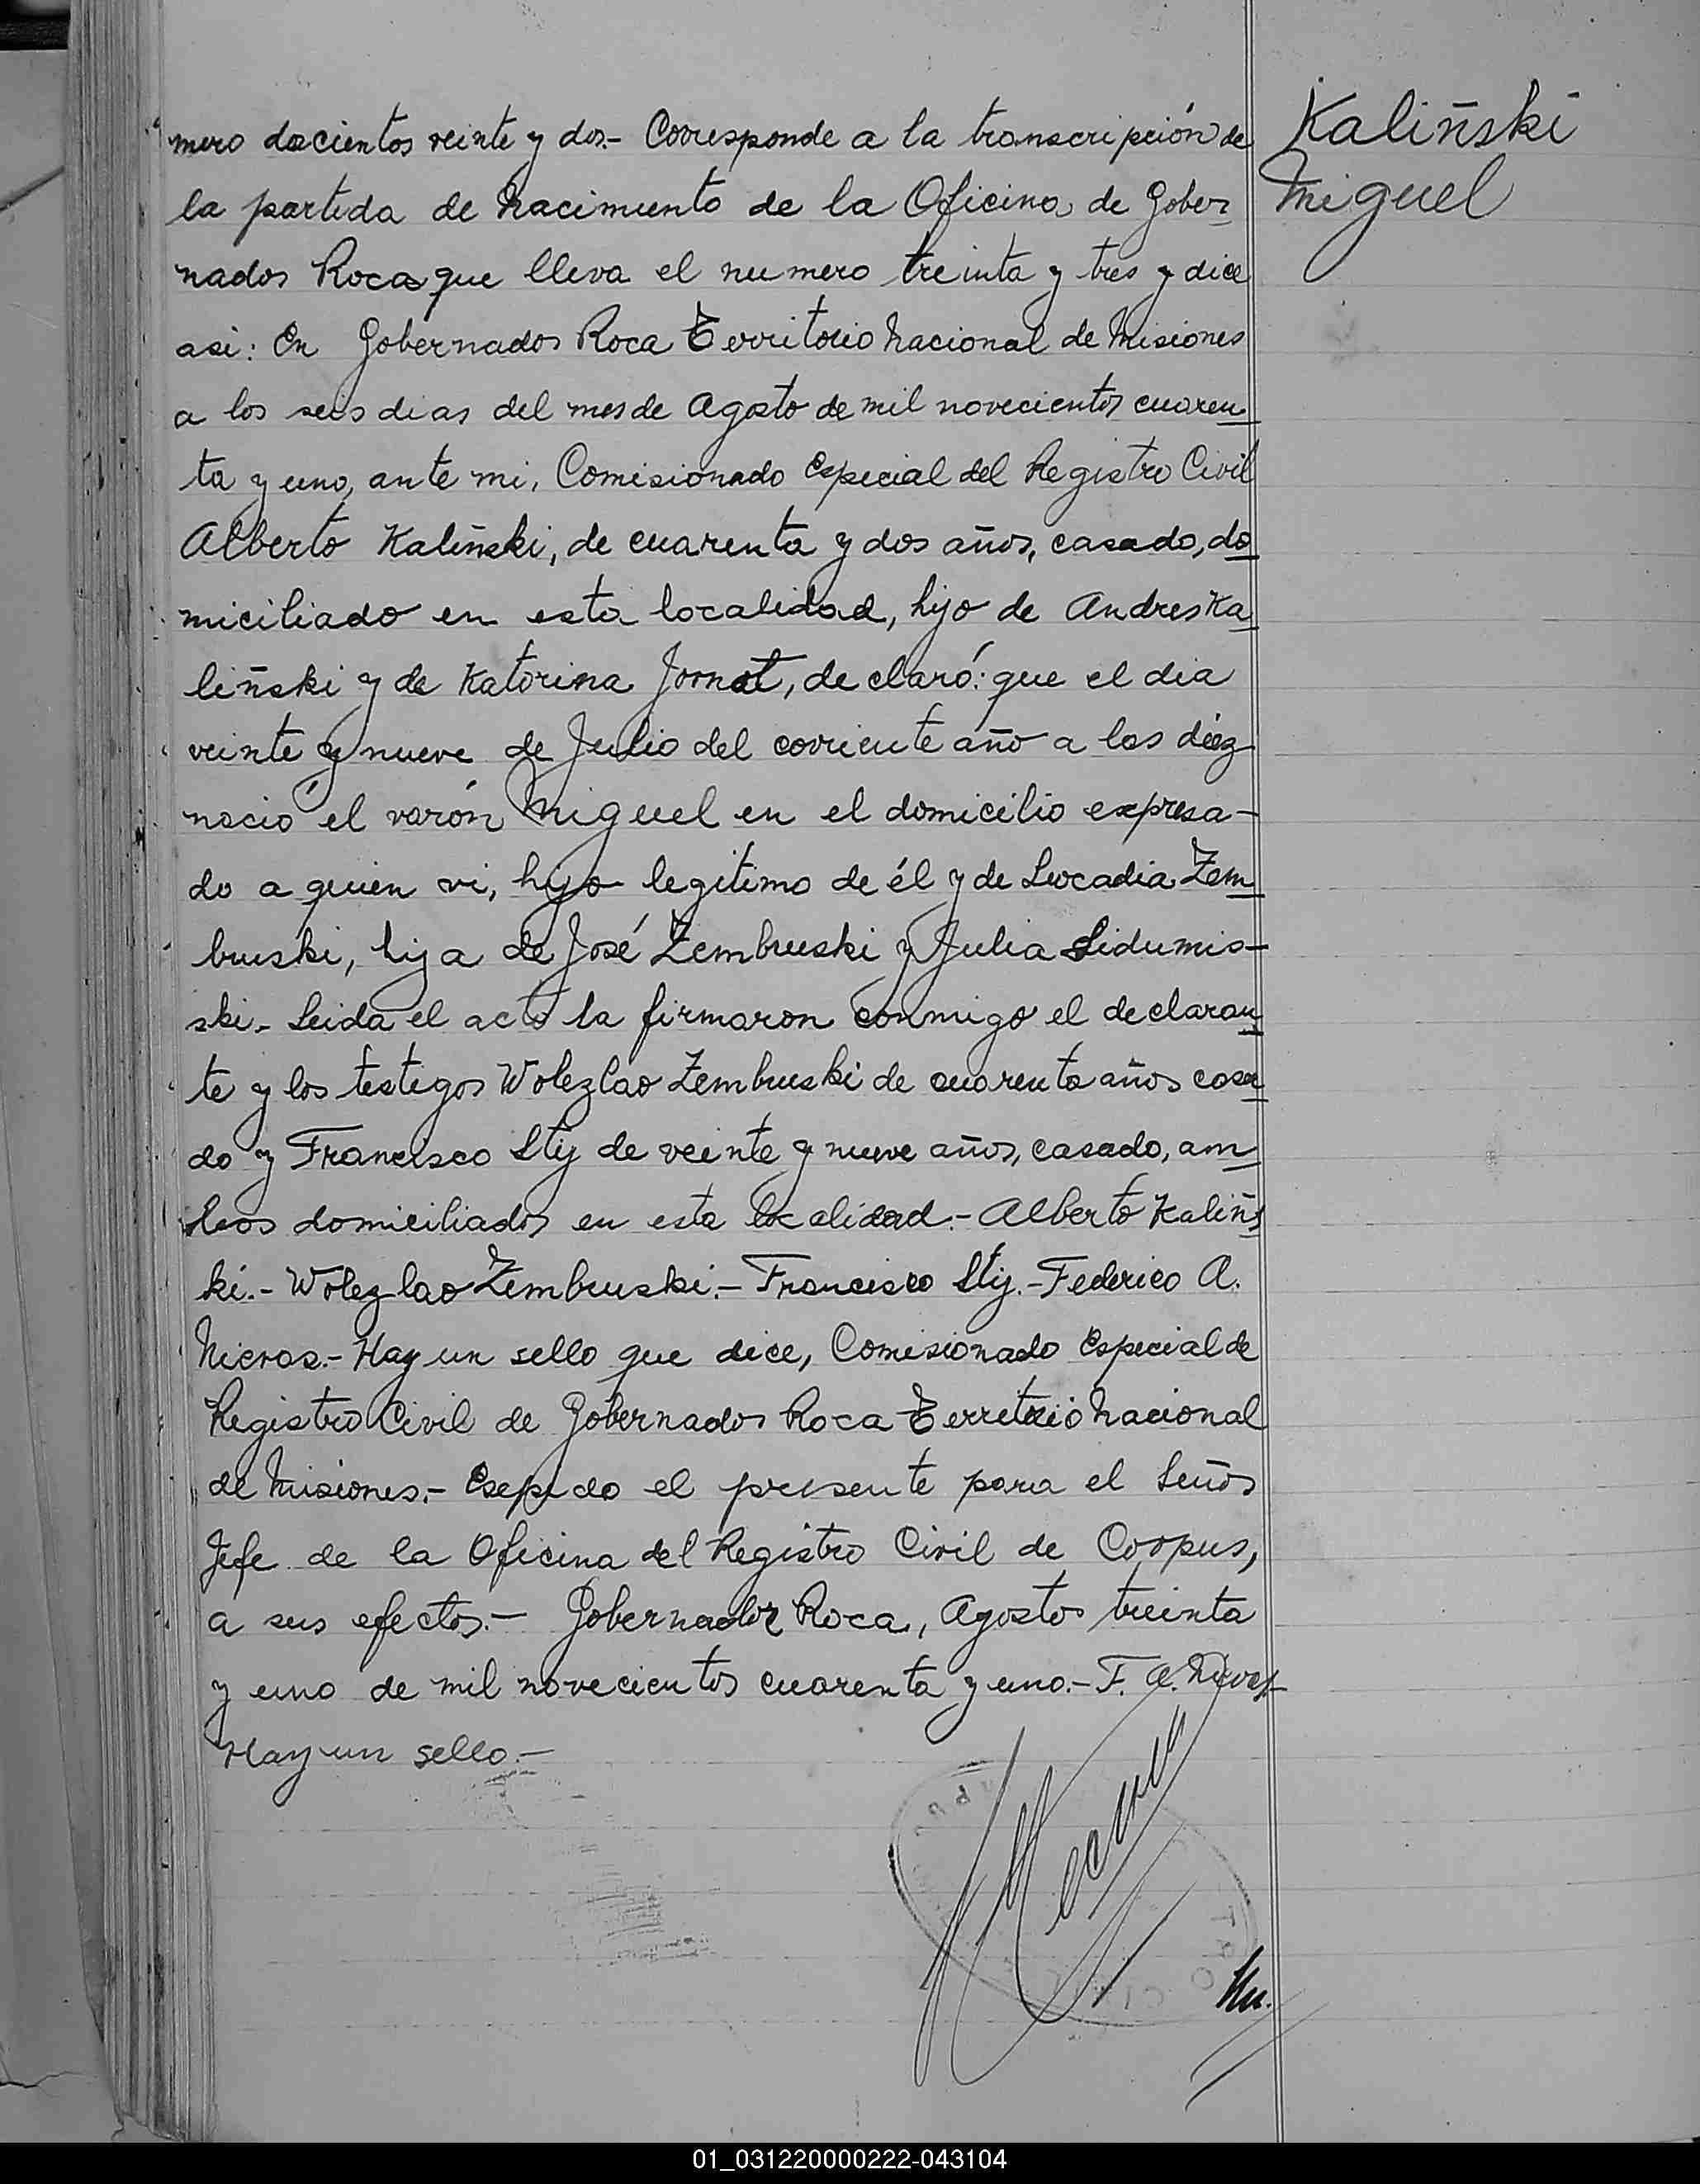 mero doscientos veinte y dos.- Corresponde a la transcripción de
la partida de Nacimiento de la Oficina de Gober
nador Roca que lleva el numero treinta y tres y dice
asi: En Gobernador Roca Territorio Nacional de Misiones
a los seis dias del mes de Agosto de mil novecientos cuaren
ta y uno, ante mi, Comisionado Especial del Registro Civil
Alberto Kaliñski, de cuarenta y dos años, casado, do
miciliado en esta localidad, hijo de Andres Ka
liñski y de Katorina Jornat, declaró: que el dia
veinte y nueve de Julio del corriente año a las diéz
nació el varón Miguel en el domicilio expresa-
do a quien vi, hijo legitimo de él y de Leocadia Zem
bruski, hija de José Zembruski y Julia Sidumis-
ski.- Leida el acta la firmaron conmigo el declaran
te y los testigos Wolezlao Zembruski de cuarenta años casa
do y Francisco Stij de veinte y nueve años, casado, am
bos domiciliados en esta localidad.- Alberto Kaliñs
ki.- Wolezlao Zembruski.- Francisco Stij.- Federico A.
Nievas.- Hay un sello que dice, Comisionado Especial de
Registro Civil de Gobernador Roca Territorio Nacional
de Misiones.- Esepido el presente para el Señor
Jefe de la Oficina del Registro Civil de Corpus,
a sus efectos.- Gobernador Roca, Agosto treinta
y uno de mil novecientos cuarenta y uno.- F. A. Nievas
Hay un sello.-
Kaliñski
Miguel
01_031220000222-043104